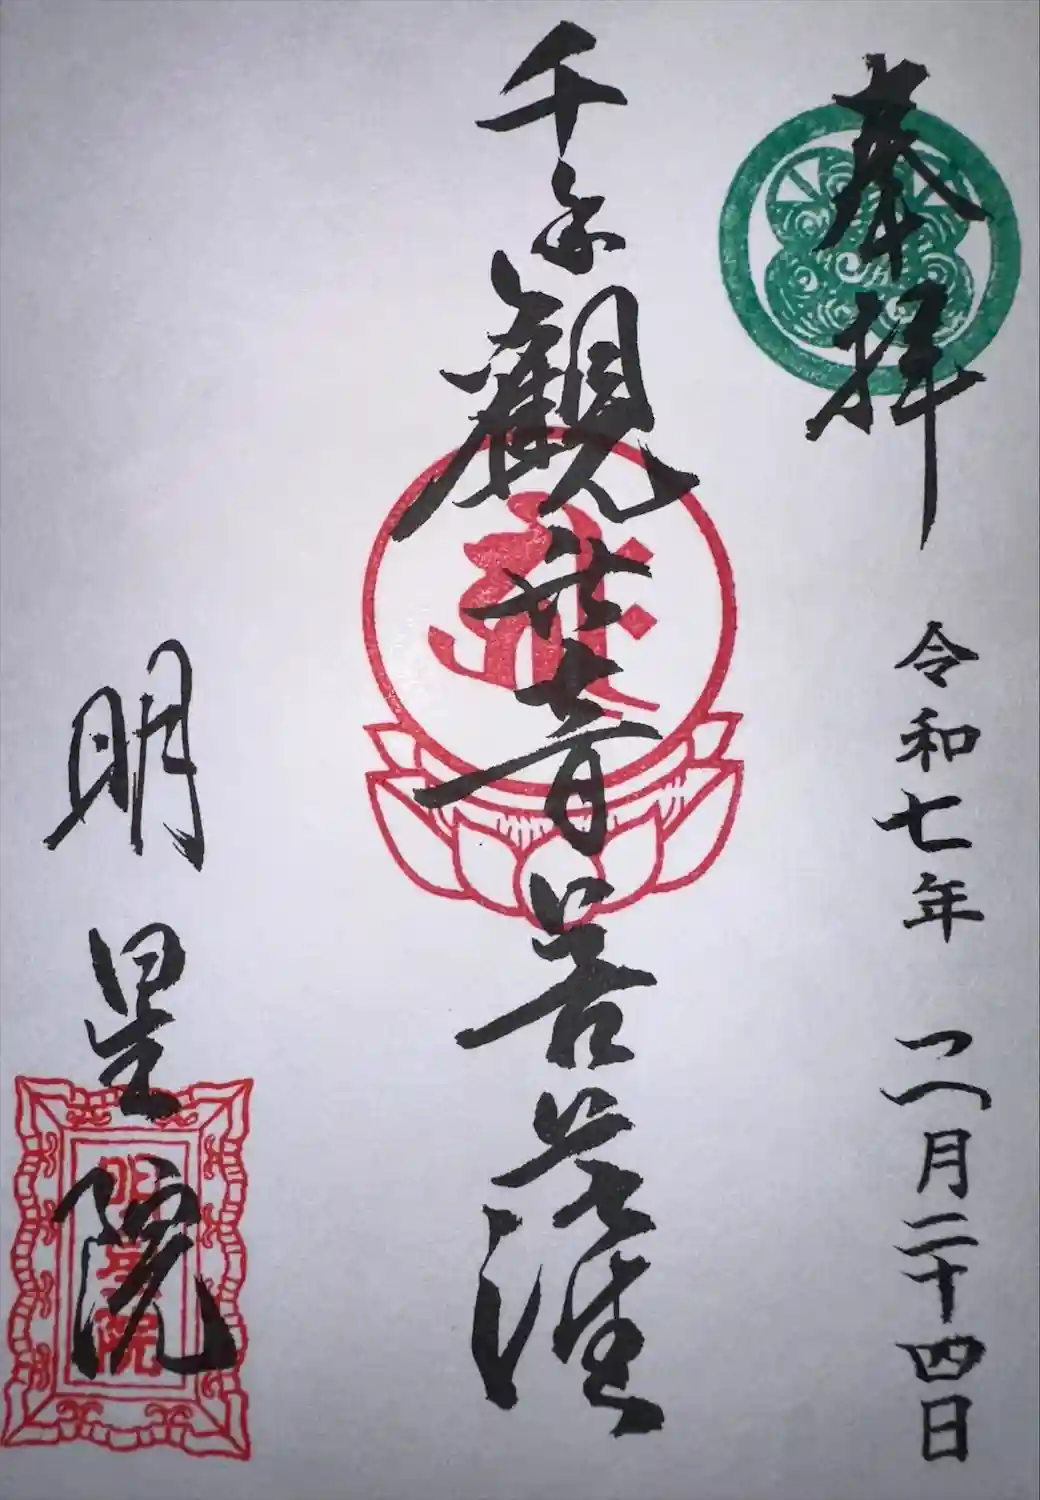 奉拝
令和七年 月二十四日
千手觀世音菩薩
明星院
明星院